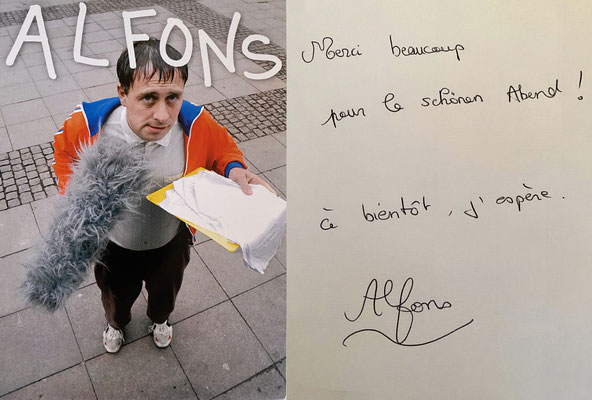 ALFONS
Merci beaucoup
pour le schönen Abend !
à bientôt, j'espère.
Alfons